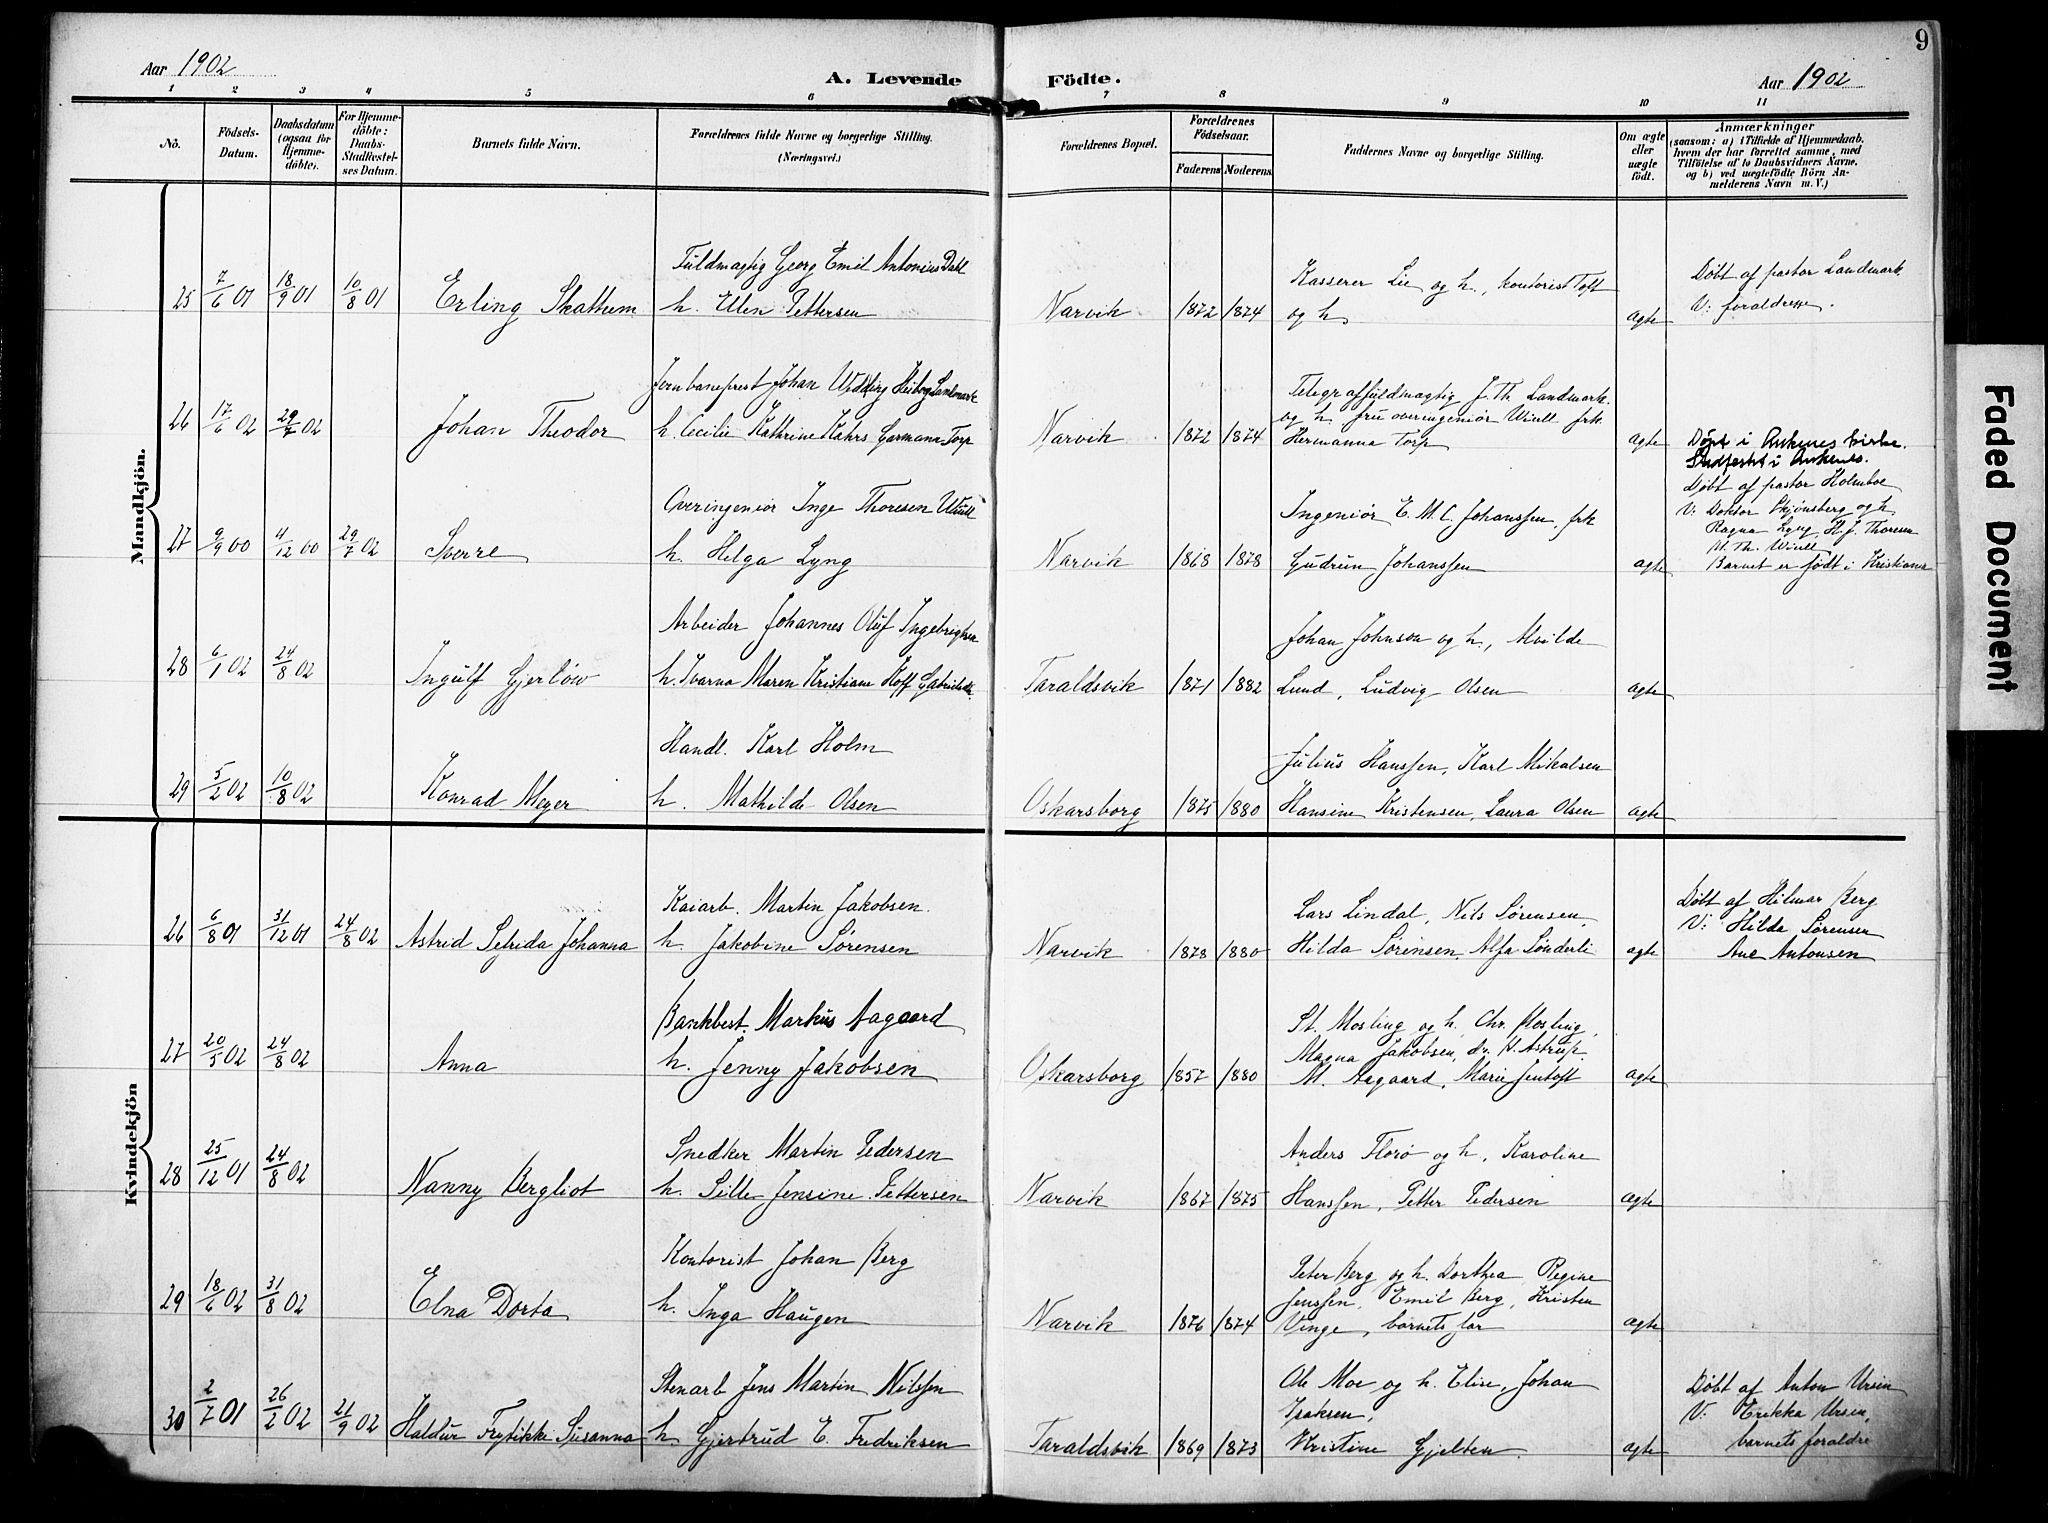 Aar 1902
A. Levende Födte.
Aar 1902
9
1 2 3 4 5 6 7 8 9 10 11
No.
Födsels-
Datum.
Daabsdatum
(ogsaa for
Hjemme-
döbte).
For Hjemme-
döbte:
Daabs-
Stadfæstel-
ses Datum.
Barnets fulde Navn.
Forældrenes fulde Navne og borgerlige Stilling.
(Næringsvei.)
Forældrenes Bopæl.
Forældrenes
Födselsaar.
Faderens
Moderens
Faddernes Navne og borgerlige Stilling.
Om ægte
eller
uægte
födt.
Anmærkninger
(saasom: a) i Tilfælde af Hjemmedaab,
hvem der har forrettet samme, med
Tilföielse af to Daabsvidners Navne.
og b) ved uægtefödte Börn An-
melderens Navn m. V.)
Mandkjön.
25 7/6 01 18/9 01 10/8 01
Erling Skathem
Fuldmægtig Georg Emil Antonius Dahl
h. Ellen Pettersen
Narvik 1872 1874
Kasserer Lie og h., kontorist Toft
og h.
ægte
Døbt af pastor Landmark
V: forældrene
26 17/6 02 29/7 02
Johan Theodor
Jernbaneprest Johan Landmark
h. Cecilie Kathrine Kahrs Garmann Torp
Narvik 1872 1874
Telegraffuldmægtig J. Th. Landmark
og h. fru overingeniør Wiull frk.
Hermanna Torp
ægte
Døpt i Ankenes kirke.
Stadfæstet i Ankenes.
27 9/9 00 4/12 00 29/7 02
Sverre
Overingeniør Inge Thoresen Wiull
h. Helga Lyng
Narvik 1868 1878
Ingeniør E. M. C. Johanssen, frk
Gudrun Johanssen
ægte
Døbt af pastor Holmboe
V: Doktor Skjønsberg og h.
Ragna Lyng, H. J. Thoresen
M. Th. Wiull
Barnet er født i Kristiania
28 6/1 02 24/8 02
Ingulf Gjerløw
Arbeider Johannes Oluf Ingebrigtsen
h. Ivarna Maren Kristiane Hoff
Taraldsvik 1871 1882
Johan Johnson og h., Alvilde
Lund, Ludvig Olsen
ægte
29 5/2 02 10/8 02
Konrad Meyer
Handl. Karl Holm
h. Mathilde Olsen
Oskarsborg 1875 1880
Julius Hanssen, Karl Mikalsen
Hansine Kristensen, Laura Olsen
ægte
Kvindekjön
26 6/8 01 31/12 01 24/8 02
Astrid Selrida Johanna
Kaiarb. Martin Jakobsen.
h. Jakobine Sørensen
Narvik 1878 1880
Lars Lindal, Nils Sørensen,
Hilda Sørensen, Alfa Sønderli
ægte
Døbt af Hilmar Berg
V: Hilda Sørensen
Ane Antonsen
27 20/5 02 24/8 02
Anna
Bankbest. Markus Aagaard
h. Jenny Jakobsen
Oskarsborg 1857 1880
St. Mosling og h. Chr. Mosling,
Magna Jakobsen, dr. N. Astrup
M. Aagaard, Marie Jentoft
ægte
28 25/12 01 24/8 02
Nanny Bergliot
Snedker Martin Pedersen
h. Sille Jensine Pettersen
Narvik 1867 1875
Anders Florø og h, Karoline
Hanssen, Petter Pedersen
ægte
29 18/6 02 31/8 02
Elna Dorta
Kontorist Johan Berg
h. Inga Haugen
Narvik 1876 1874
Peter Berg og h. Dorthea Regine
Jenssen, Emil Berg, Kristen
Vinge, barnets far
ægte
30 2/7 01 26/2 02 21/9 02
Haldur Frytikke Susanna
Stenarb Jens Martin Nilssen
h. Gjertrud E. Fredriksen
Taraldsvik 1869 1873
Ole Moe og h. Elise, Johan
Isaksen,
Kristine Gjelten
ægte
Døbt af Anton Ursin
V: Erikka Ursin,
barnets forældre
Faded Document